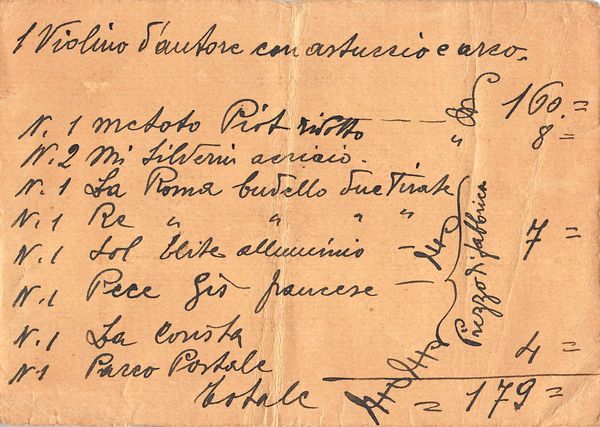 1 Violino d'autore con astuccio e arco.
160. =
N. 1 metoto Piot ridotto — " 8 =
N. 2 Mi Silderin acciaio.
N. 1 La Roma budello due Tirate
N. 1 Re " " " "
N. 1 Sol Elite alluminio — 7 =
N. 1 Pece Gis francese —
Prezzo di fabbrica
N. 1 La
N. 1 Parco Postale 4 =
Totale = 179 =